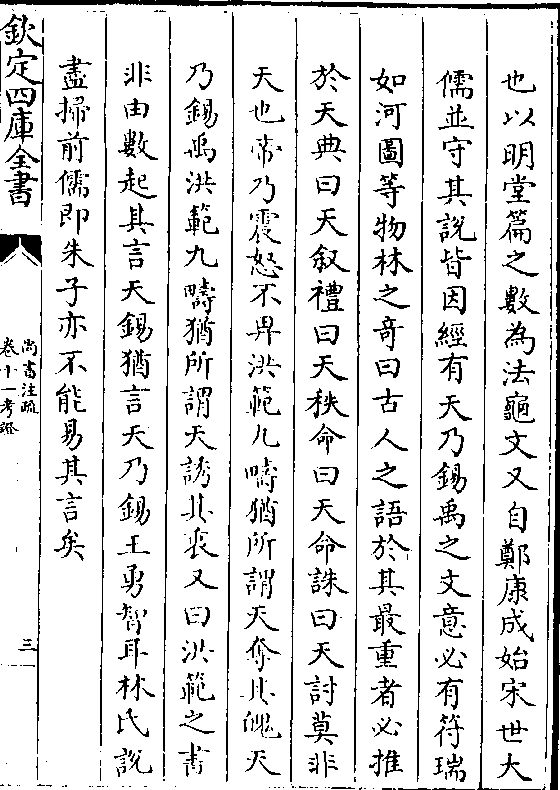 也以明堂篇之數為法龜文又自鄭康成始宋世大
儒並守其說皆因經有天乃錫禹之文意必有符瑞
如河圖等物林之奇曰古人之語於其最重者必推
於天典曰天叙禮曰天秩命曰天命誅曰天討莫非
天也帝乃震怒不畀洪範九疇猶所謂天奪其魄天
乃錫禹洪範九疇猶所謂天誘其衷又曰洪範之書
非由數起其言天錫猶言天乃錫王勇智耳林氏說
盡掃前儒即朱子亦不能易其言矣
欽定四庫全書
尚書注疏
卷十一考證
三